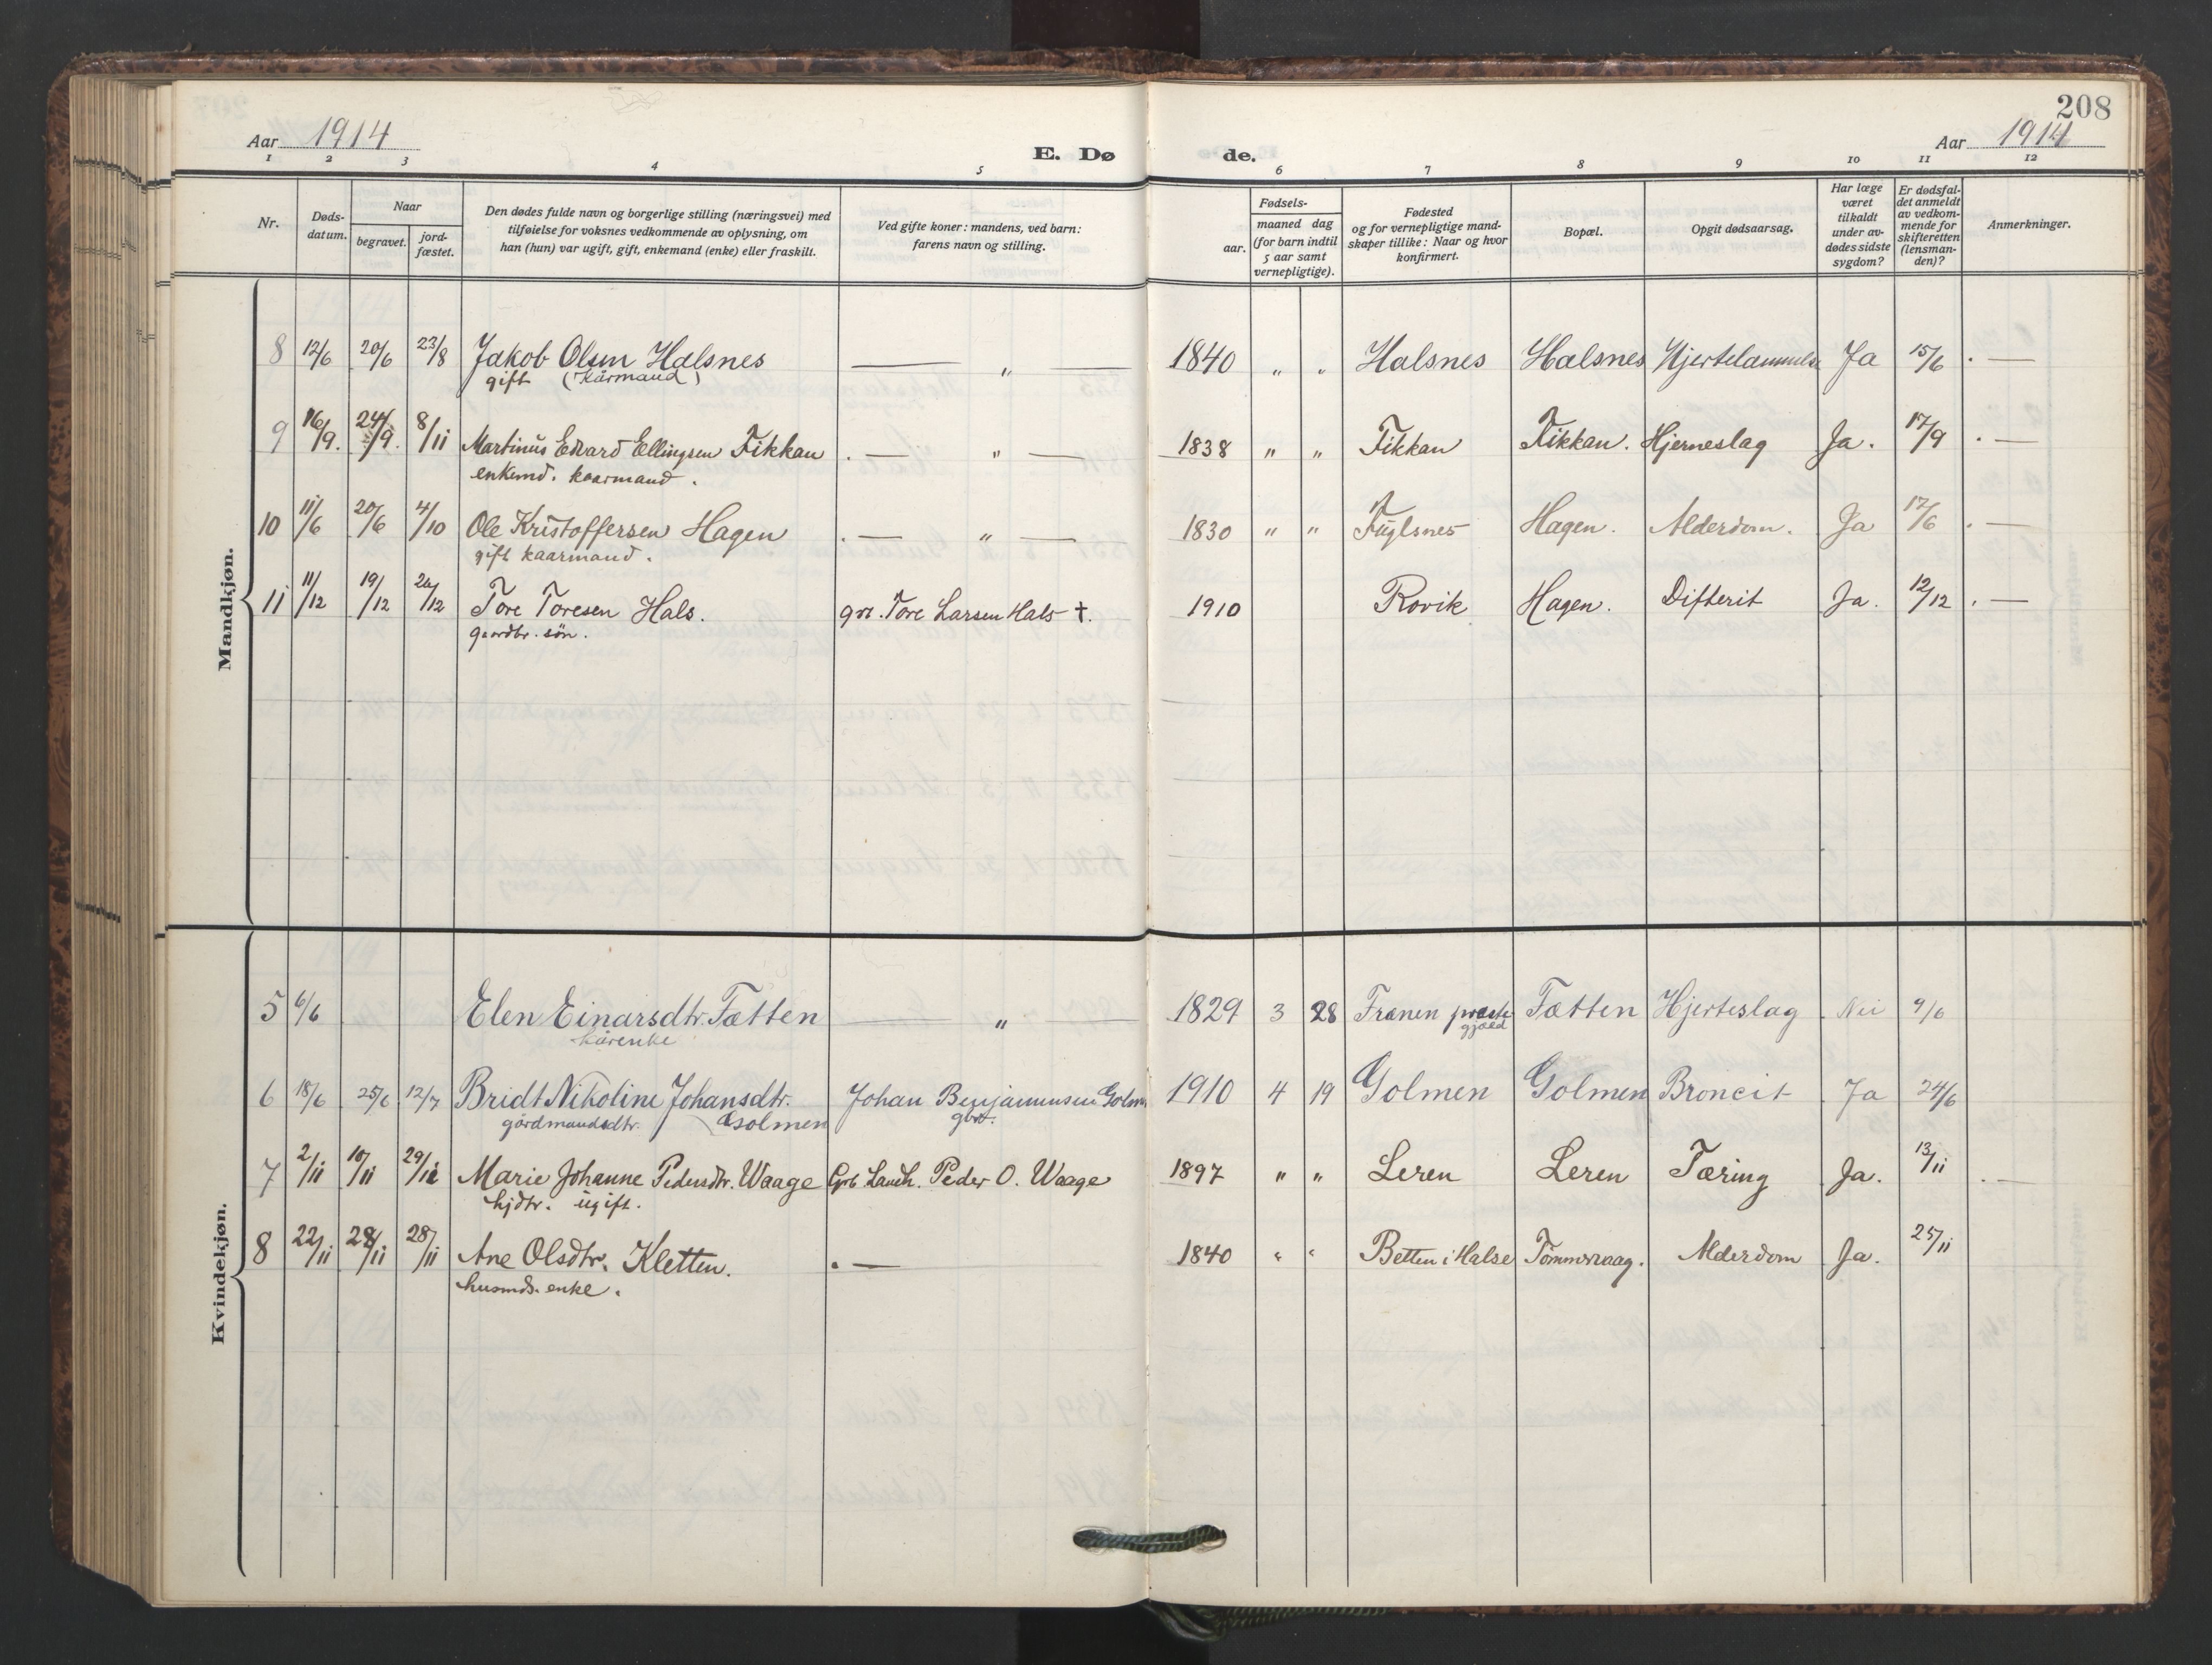 208
Aar 1914
E. Dø
de.
Aar 1914
1 2 3 4 5 6 7 8 9 10 11 12
Nr.
Døds-
datum.
Naar
begravet.
jord-
fæstet.
Den dødes fulde navn og borgerlige stilling (næringsvei) med
tilføielse for voksnes vedkommende av oplysning, om
han (hun) var ugift, gift, enkemand (enke) eller fraskilt.
Ved gifte koner: mandens, ved barn:
farens navn og stilling.
Fødsels-
aar.
maaned dag
(for barn indtil
5 aar samt
vernepligtige).
Fødested
og for vernepligtige mand-
skaper tillike: Naar og hvor
konfirmert.
Bopæl.
Opgit dødsaarsag.
Har læge
været
tilkaldt
under av-
dødes sidste
sygdom?
Er dødsfal-
det anmeldt
av vedkom-
mende for
skifteretten
(lensman-
den)?
Anmerkninger.
Mandkjøn.
8 12/6 20/6 23/8 Jakob Olsen Halsnes — „ — 1840 „ „ Halsnes Halsnes Hjertelammelse Ja 15/6 . —
gift (Kårmand)
9 16/9. 24/9. 8/11 Martinus Edvard Ellingsen Fikkan . — „ — 1838 „ „ Fikkan Fikkan. Hjerneslag Ja. 17/9 . —
enkemd. kaarmand.
10 11/6 20/6 4/10 Ole Kristoffersen Hagen . — „ — 1830 „ „ Fuglsnes Hagen. Alderdom. Ja 12/6 . —
gift kaarmand.
11 11/12 19/12 26/12 Tore Toresen Hals. Tore Larsen Hals †. 1910 Rovik Hagen. Difterit Ja. 12/12 . —
gaardbr. søn.
Kvindekjøn.
5 6/6 Elen Einarsdtr. Tætten — „ — 1829 3 28 Frænen præste Tætten Hjerteslag Nei 9/6
kårenke gjæld
6 18/6 25/6 12/7 Bridt Nikoline Johansdtr. Johan Benjaminsen Golmen 1910 4 19 Golmen Golmen Broncit Ja 24/6
gårdmandsdtr. Golmen gbr.
7 2/11 10/11 29/12 Marie Johanne Pedersdtr. Waage Grb. Peder O. Waage 1897 „ „ Leren Leren Tæring Ja. 13/11 . —
hjdtr. ugift.
8 22/11 28/11 28/11 Ane Olsdtr. Kletten. . — 1840 „ „ Betten i Halse Tømmervaag. Alderdom Ja. 25/11
husmds. enke.